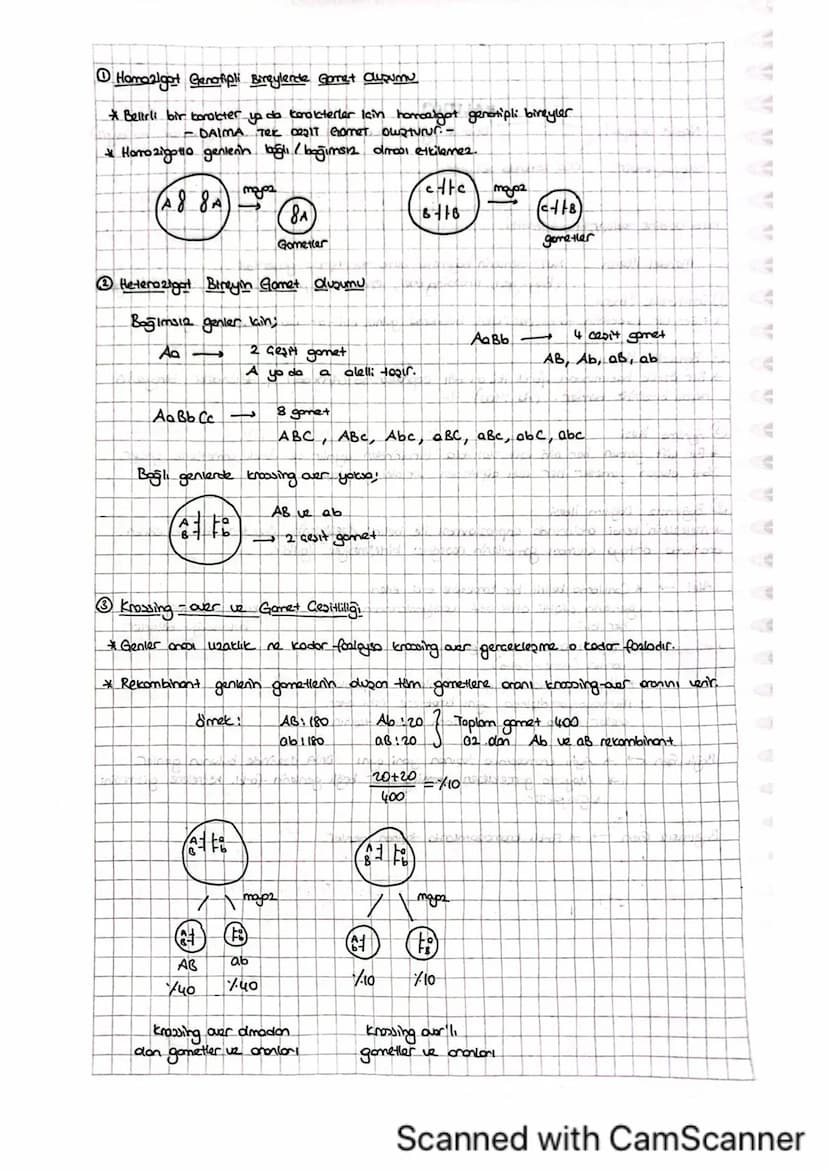 ① Homozigot Genotipli Bireylerde Gamet Oluşumu
* Belirli bir karakter ya da karakterler için homozigot genotipli bireyler
- DAİMA TEK ÇEŞİT GAMET OLUŞTURUR. -
* Homozigotta genlerin bağlı / bağımsız olması etkilemez.
A A mayoz A
Gametler
c c B B mayoz c B
gametler
② Heterozigot Bireyin Gamet Oluşumu
Bağımsız genler için;
Aa → 2 çeşit gamet
A ya da a aleli taşır.
AaBb → 4 çeşit gamet
AB, Ab, aB, ab
AaBbCc → 8 gamet
ABC, ABc, Abc, aBC, aBc, abC, abc
Bağlı genlerde krossing over yoksa;
A B a b
AB ve ab
→ 2 çeşit gamet
③ Krossing-over ve Gamet Çeşitliliği
* Genler arası uzaklık ne kadar fazlaysa krossing over gerçekleşme o kadar fazladır.
* Rekombinant genlerin gametlerin oluşan tüm gametlere oranı krossing-over oranını verir.
örnek: AB: 180 Ab: 20 } Toplam gamet 400
ab: 180 aB: 20 02 dan Ab ve aB rekombinant
20+20
400 = %10
A B a b
mayoz
A B a b
AB ab
%40 %40
krossing over olmadan
olan gametler ve oranları
A B a b
mayoz
A b a B
%10 %10
krossing over'lı
gametler ve oranları
Scanned with CamScanner